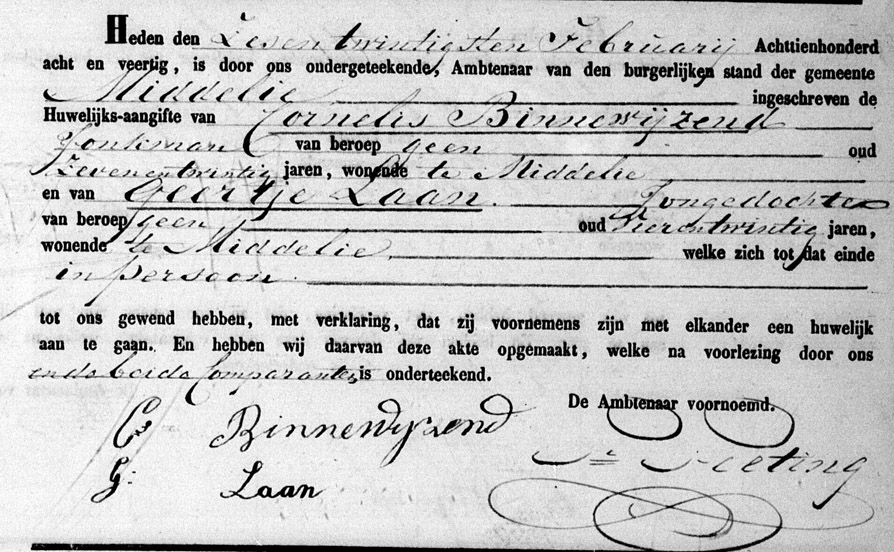 Heden den Zevenentwintigsten Februarij Achttienhonderd
acht en veertig, is door ons ondergeteekende, Ambtenaar van den burgerlijken stand der gemeente
Middelie ingeschreven de
Huwelijks-aangifte van Cornelis Binnewijzend
Jonkman van beroep geen oud
Zevenentwintig jaren, wonende te Middelie
en van Geertje Laan. Jongedochter
van beroep geen oud Vierentwintig jaren,
wonende te Middelie. welke zich tot dat einde
in persoon.
tot ons gewend hebben, met verklaring, dat zij voornemens zijn met elkander een huwelijk
aan te gaan. En hebben wij daarvan deze akte opgemaakt, welke na voorlezing door ons
en de beide Comparanten, is onderteekend.
De Ambtenaar voornoemd.
Cs Binnewijzend
G: Laan